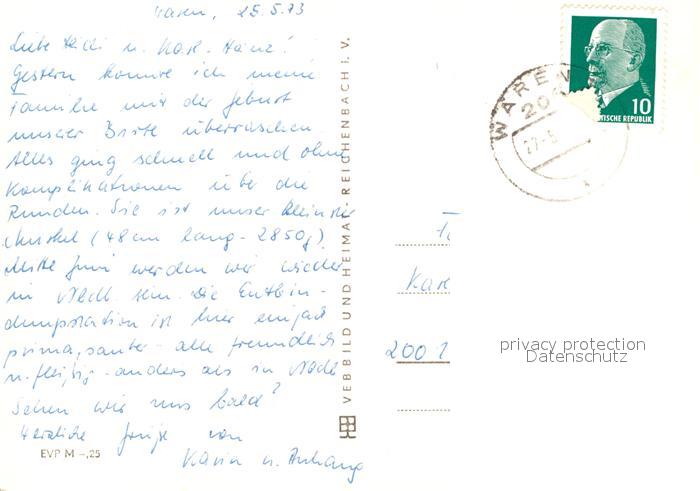 Waren, 25.5.73
Liebe Heidi u. Karl-Heinz!
Gestern konnte ich meine
Familie mit der Geburt
unserer Birte überraschen.
Alles ging schnell und ohne
Komplikationen über die
Runden. Sie ist unser kleinster
Murkel (48 cm lang - 2850g)
Mitte Juni werden wir wieder
in Nbdb. sein. Die Entbin-
dungsstation ist hier einfach
prima, sauber - alle freundlich
u. fleißig - anders als in Nbdb
Sehen wir uns bald?
Herzliche Grüße von
Karin u. Anhang
EVP M -,25
VEB BILD UND HEIMAT REICHENBACH I. V.
10
TSCHE REPUBLIK
WAREN
20
27.-5
Karl
2001
privacy protection
Datenschutz